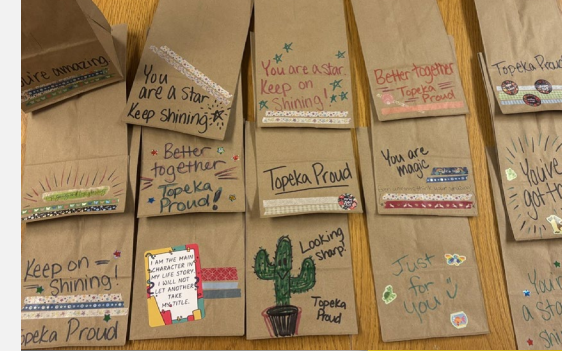 You're amazing
You
are a star.
Keep shining
You are a star.
Keep on
Shining!
Better together
Topeka
Proud
Topeka Proud
Better
together
Topeka
Proud!
Topeka Proud
You are
magic
You've
got
Keep on
Shining!
Topeka Proud
I AM THE MAIN
CHARACTER IN
MY LIFE STORY.
I WILL NOT
LET ANOTHER
TAKE
MY TITLE.
Looking
sharp!
Topeka
Proud
Just
for
you
You're
a sta
Shin